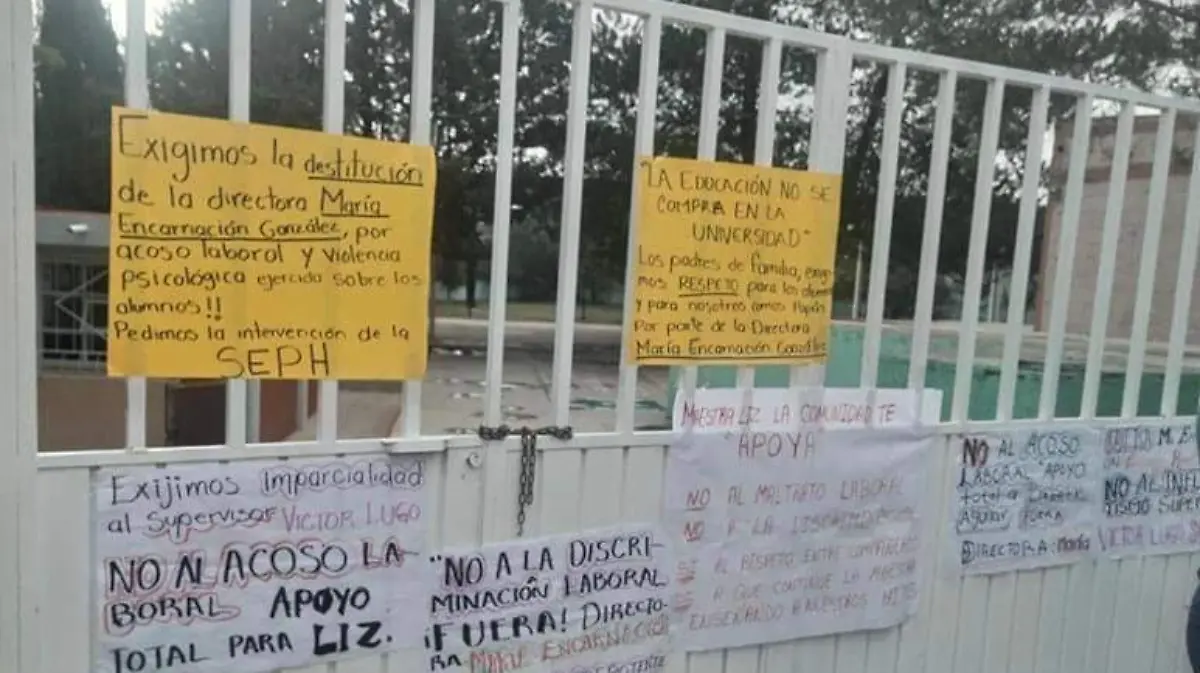 Exigimos la destitución
de la directora María
Encarnación González, por
acoso laboral y violencia
psicológica ejercida sobre los
alumnos!!
Pedimos la intervención de la
SEPH
"LA EDUCACIÓN NO SE
COMPRA EN LA
UNIVERSIDAD"
Los padres de familia, exigi-
mos RESPETO para los
y para nosotros como
Por parte de la Directora
María Encarnación González
Exijimos Imparcialidad
al Supervisor VICTOR LUGO
NO AL ACOSO LA-
BORAL APOYO
TOTAL PARA LIZ.
"NO A LA DISCRI-
MINACIÓN LABORAL
¡FUERA! DIRECTO-
RA
MAESTRA LIZ LA COMUNIDAD TE
"APOYA"
NO AL MALTRATO LABORAL
NO A LA
SI AL RESPETO ENTRE
A QUE CONTINUE LA MAESTRA
ENSEÑANDO A NUESTROS HIJOS
NO AL ACOSO
LABORAL APOYO
total a
Aguilar FUERA
DIRECTORA: María
NO AL
VICTOR LUGO